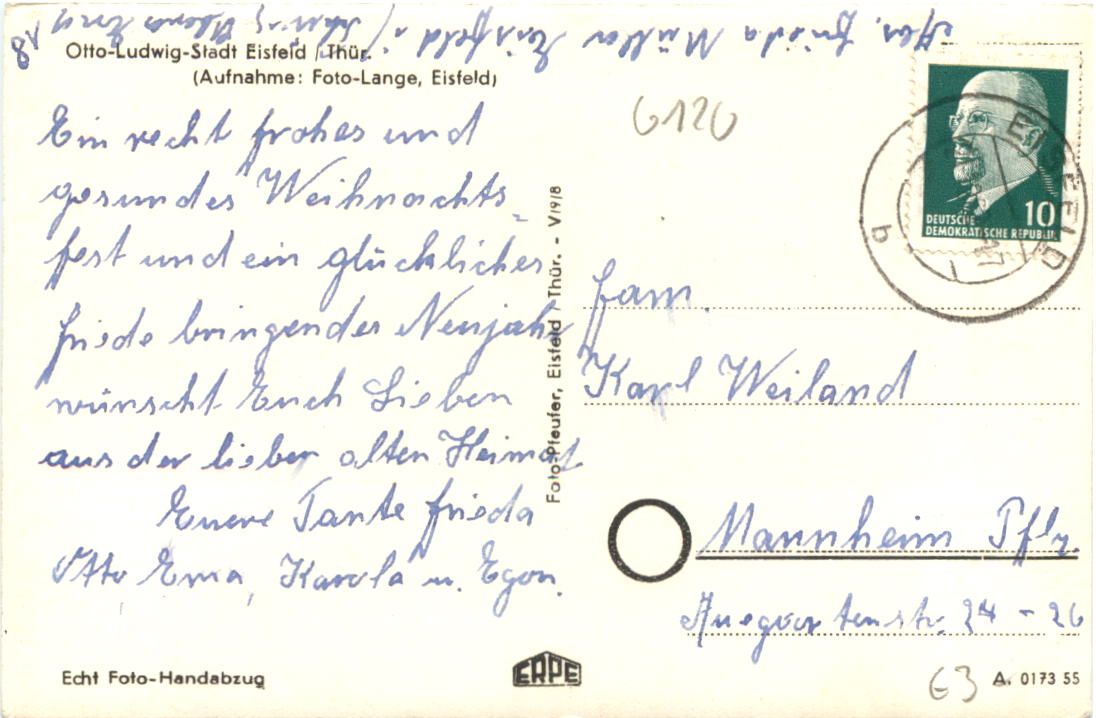 Abs. Frieda Müller Eisfeld i/
18
Otto-Ludwig-Stadt Eisfeld / Thür.
(Aufnahme: Foto-Lange, Eisfeld)
6126
Ein recht frohes und
gesundes Weihnachts-
fest und ein glückliches
friede bringendes Neujahr
wünscht Euch Lieben
aus der lieben alten Heimat
Euere Tante Frieda
Otto Erna, Karola u. Egon.
Foto-Pfeufer, Eisfeld / Thür. - V/9/8
DEUTSCHE
DEMOKRATISCHE REPUBLIK
10
EISFELD
b
Fam.
Karl Weiland
Mannheim Pflz.
Augartenstr. 24 - 26
Echt Foto-Handabzug
ERPE
63
A. 0173 55